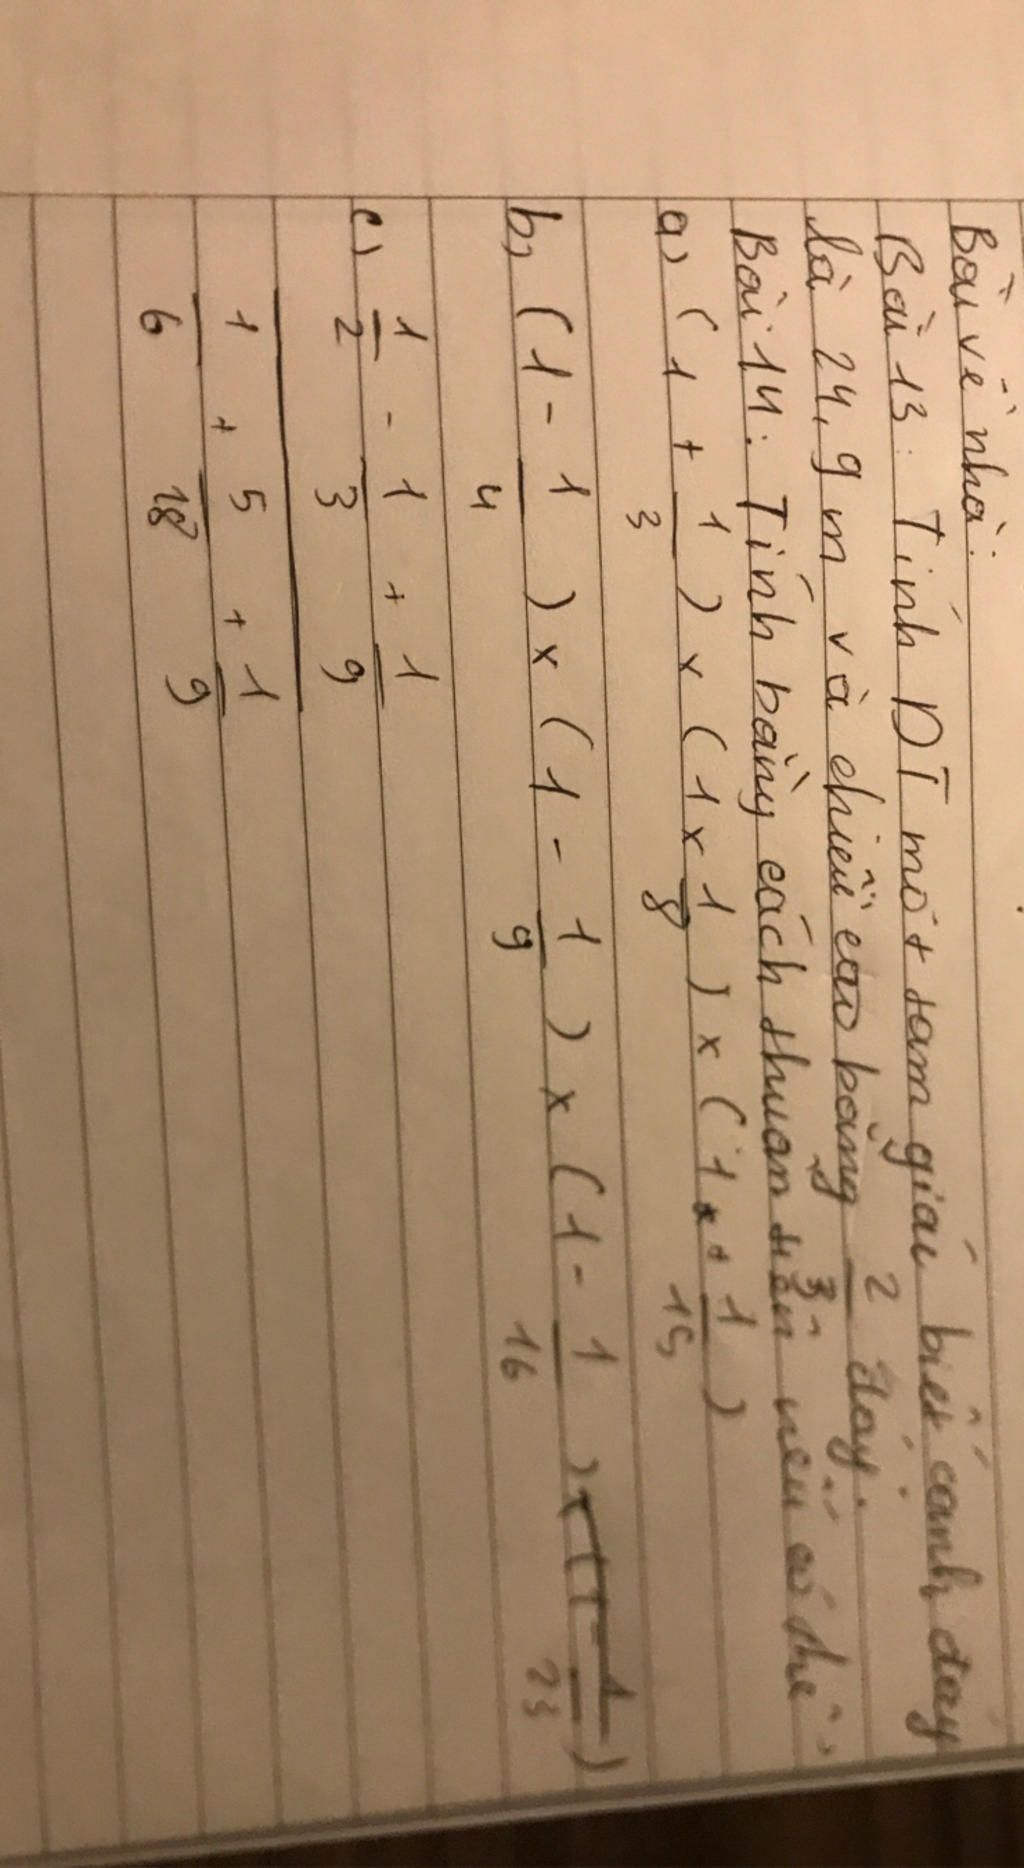 Bài về nhà:
Bài 13: Tính DT một tam giác biết cạnh đáy
là 24,9 m và chiều cao bằng 2/3 đáy.
Bài 14: Tính bằng cách thuận tiện nếu có thể.
a) (1 + 1/3) x (1 x 1/8) x (1 x + 1/15)
b) (1 - 1/4) x (1 - 1/9) x (1 - 1/16) x (1 - 1/23)
c) 1/2 - 1/3 + 1/9
1/6 + 5/18 + 1/9